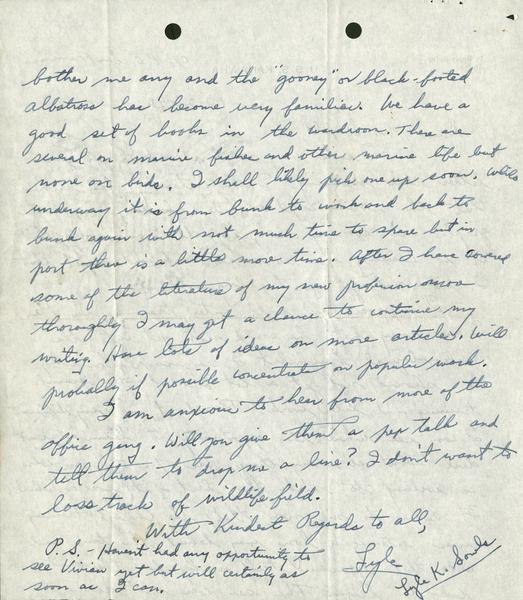 bother me any and the "gooney" or black-footed
albatross has become very familiar. We have a
good set of books in the wardroom. There are
several on marine fishes and other marine life but
none on birds. I shall likely pick one up soon. While
underway it is from bunk to work and back to
bunk again with not much time to spare but in
port there is a little more time. After I have covered
some of the literature of my new profession more
thoroughly I may get a chance to continue my
writing. Have lots of ideas on more articles. Will
probably if possible concentrate on popular work.
I am anxious to hear from more of the
office gang. Will you give them a pep talk and
tell them to drop me a line? I don't want to
loss track of wildlife field.
With Kindest Regards to all,
Lyle
Lyle K. Sowls
P.S. - Haven't had any opportunity to
see Vivian yet but will certainly as
soon as I can.